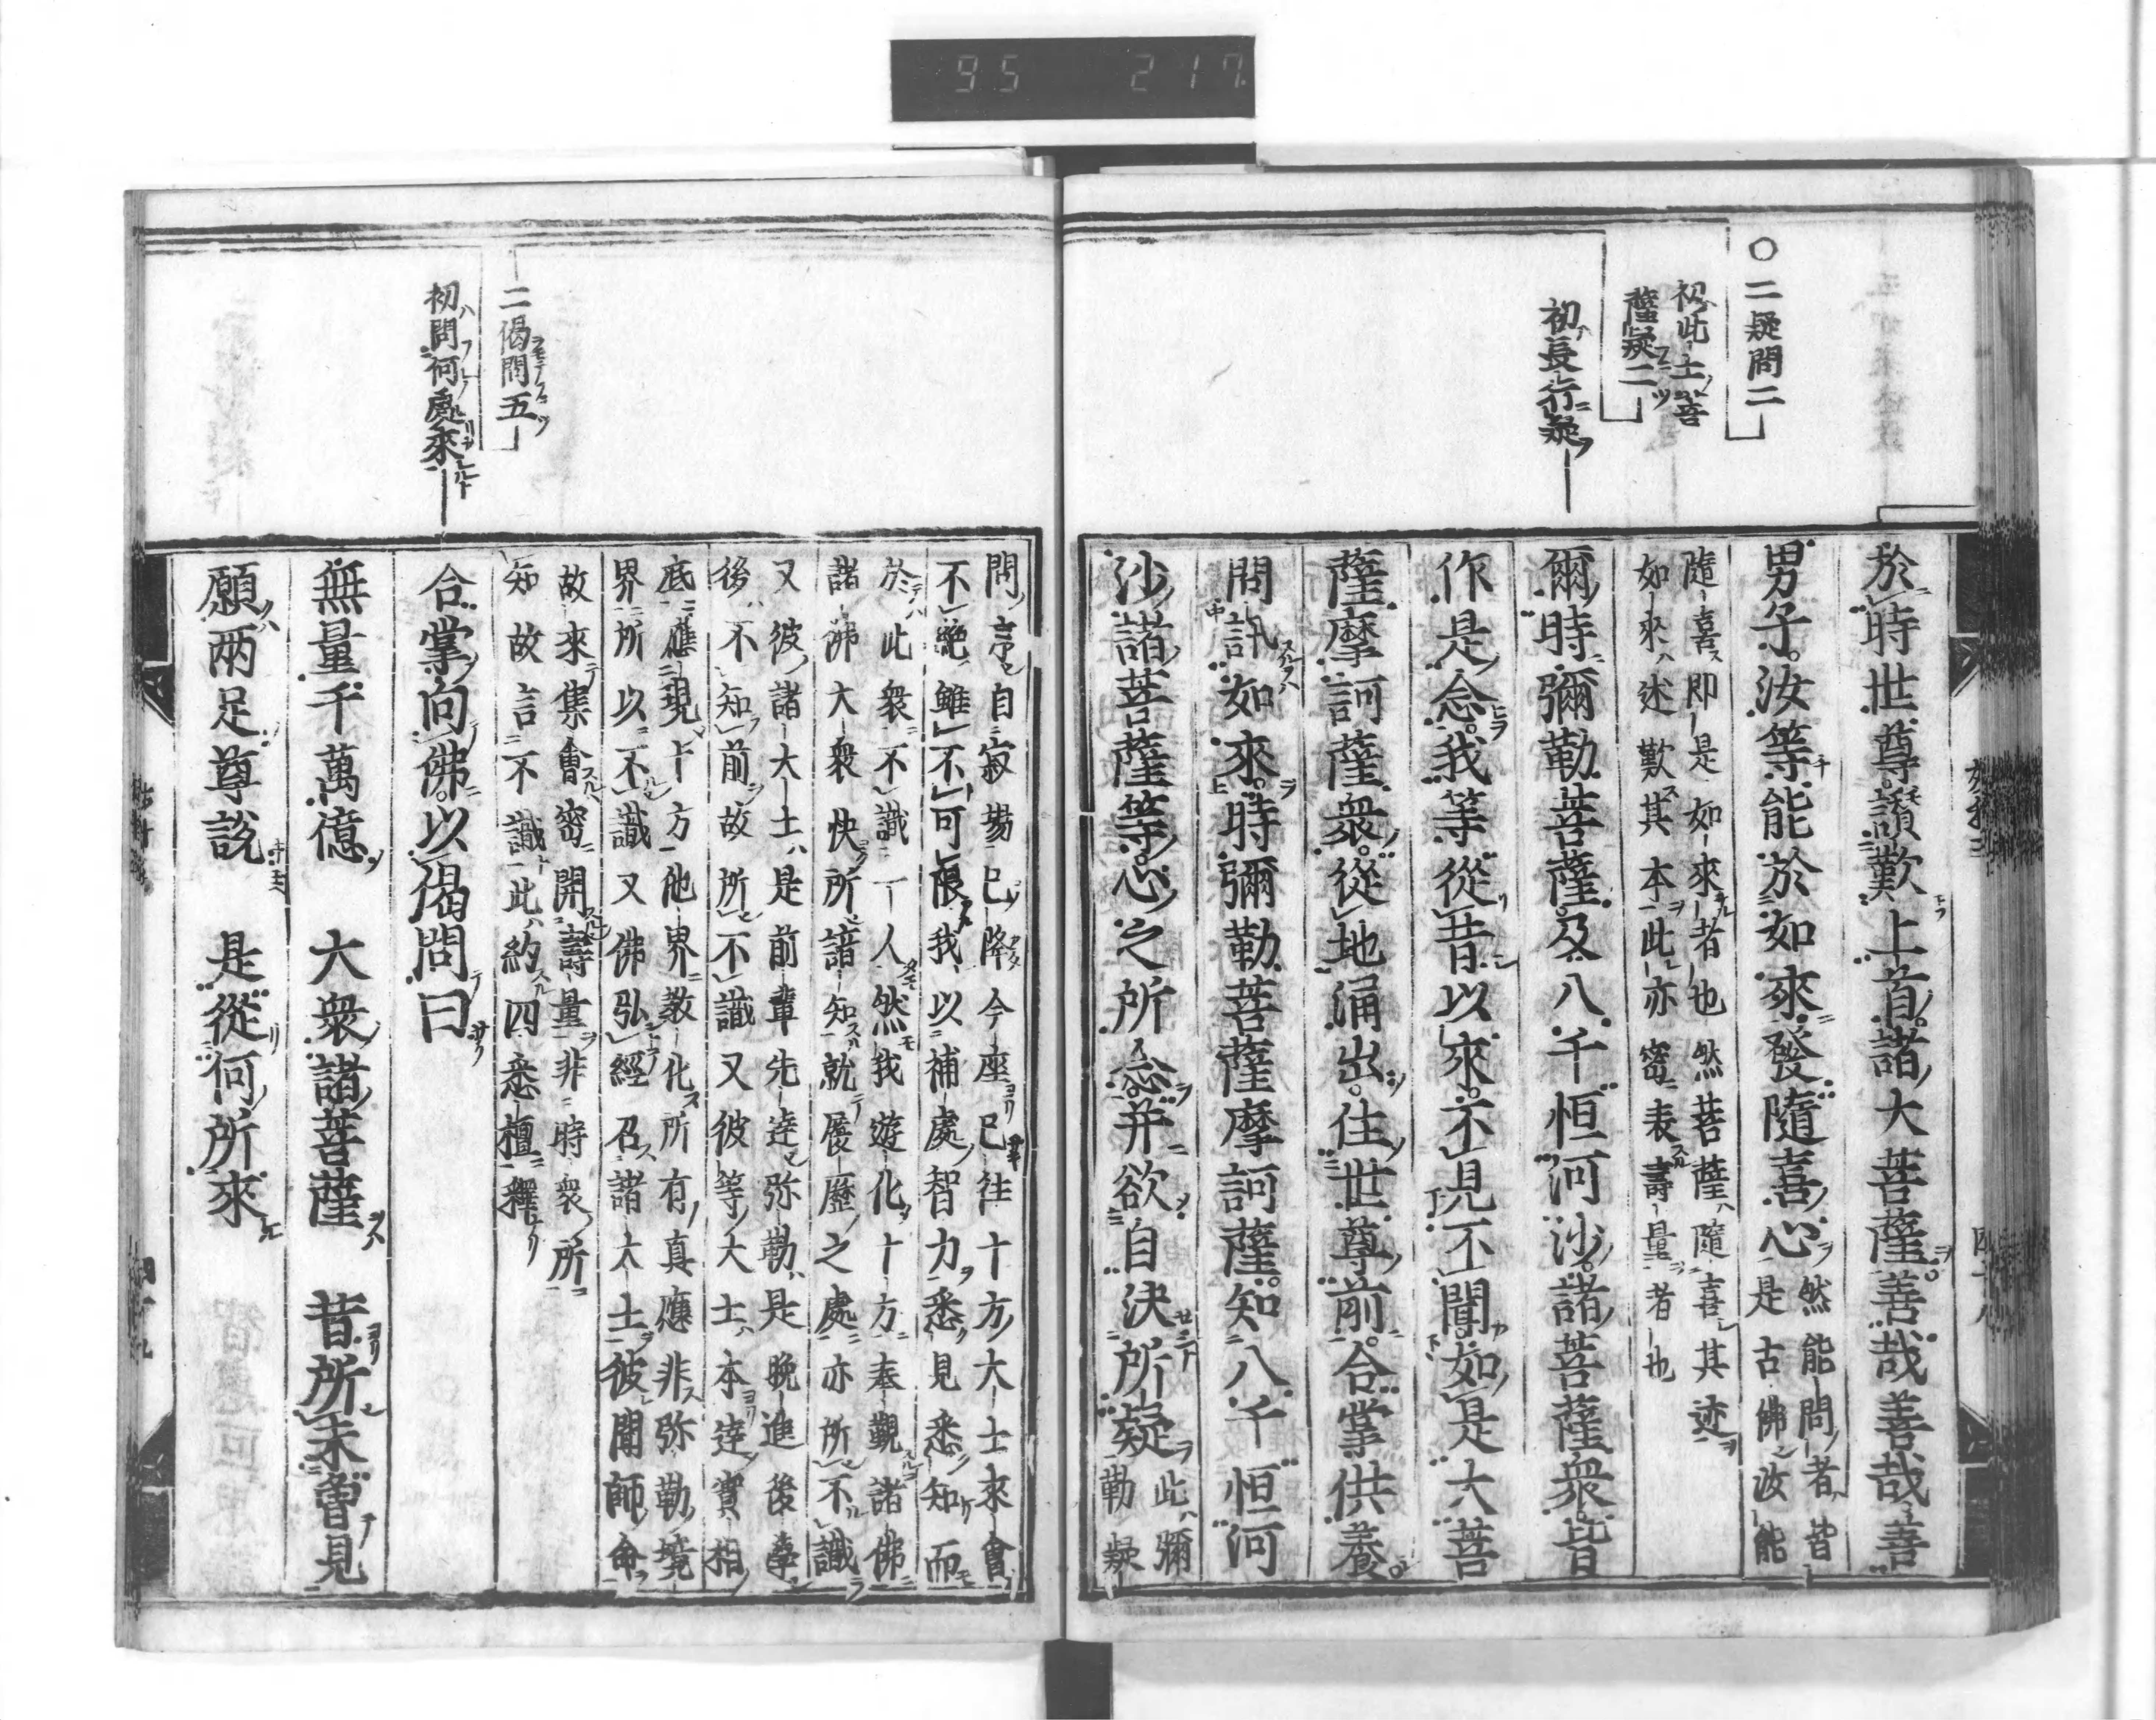 95 217
〇二疑問二
初此土菩
薩疑二
初長行疑
於時世尊讃歎上首諸大菩薩善哉善哉善
男子汝等能於如來發隨喜心然能問者皆
是古佛汝能
隨喜即是如來者也然菩薩隨喜其迹
如來述歎其本此亦密表壽量者也
爾時彌勒菩薩及八千恒河沙諸菩薩衆皆
作是念我等從昔以來不見不聞如是大菩
薩摩訶薩衆從地涌出住世尊前合掌供養
問訊如來時彌勒菩薩摩訶薩知八千恒河
沙諸菩薩等心之所念并欲自決所疑此彌
勒疑
二偈問五
初問何處來
問意自寂場已降今座已往十方大士來會
不絶雖不可限我以補處智力悉見悉知而
於此衆不識一人然我遊化十方奉觀諸佛
諸佛大衆快所諳知就履歷之處亦所不識
又彼諸大士是前輩先達弥勒是晚進後學
後不知前故所不識又彼等大士本達實相
底應現十方他界教化所有真應非弥勒境
界所以不識又佛弘經召諸大士彼聞師命
故來集會密開壽量非時衆所
知故言不識此約四悉檀釋
合掌向佛以偈問曰
無量千萬億　大衆諸菩薩　昔所未曾見
願兩足尊說　是從何所來